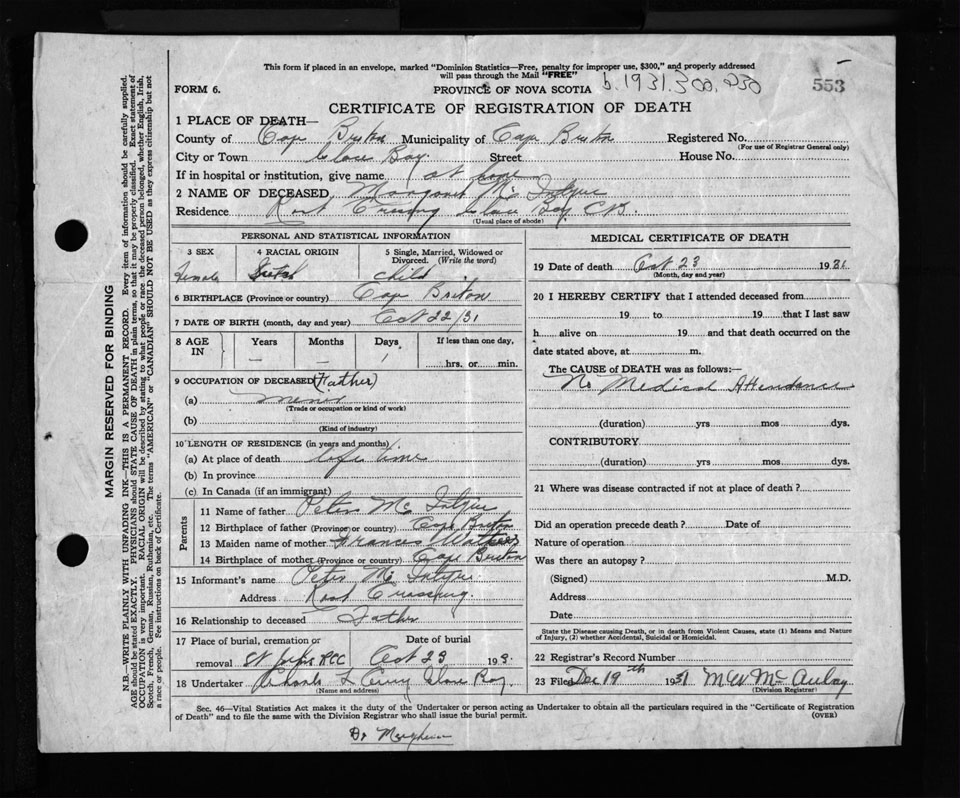 This form if placed in an envelope, marked "Dominion Statistics—Free, penalty for improper use, $300," and properly addressed
will pass through the Mail "FREE"
FORM 6.
PROVINCE OF NOVA SCOTIA
b. 1931.
553
CERTIFICATE OF REGISTRATION OF DEATH
1 PLACE OF DEATH—
County of Cape Breton Municipality of Cape Breton Registered No.
(For use of Registrar General only)
City or Town Glace Bay Street House No.
If in hospital or institution, give name at home
2 NAME OF DECEASED Margaret Mc Intyre
Residence Crossing Glace Bay C.B.
(Usual place of abode)
PERSONAL AND STATISTICAL INFORMATION
3 SEX 4 RACIAL ORIGIN 5 Single, Married, Widowed or Divorced. (Write the word)
Female child
6 BIRTHPLACE (Province or country) Cape Breton
7 DATE OF BIRTH (month, day and year) Oct 22/31
8 AGE IN Years Months Days If less than one day,
— — 1 hrs. or min.
9 OCCUPATION OF DECEASED (Father)
(a) miner
(Trade or occupation or kind of work)
(b)
(Kind of industry)
10 LENGTH OF RESIDENCE (in years and months)
(a) At place of death life time
(b) In province
(c) In Canada (if an immigrant)
Parents
11 Name of father Peter Mc Intyre
12 Birthplace of father (Province or country) Cape Breton
13 Maiden name of mother Frances
14 Birthplace of mother (Province or country) Cape Breton
15 Informant's name Peter Mc Intyre
Address Crossing
16 Relationship to deceased Father
17 Place of burial, cremation or removal Date of burial
Oct 23 193
18 Undertaker Glace Bay
(Name and address)
MEDICAL CERTIFICATE OF DEATH
19 Date of death Oct 23 1931
(Month, day and year)
20 I HEREBY CERTIFY that I attended deceased from
19 to 19 that I last saw
h alive on 19 and that death occurred on the
date stated above, at m.
The CAUSE of DEATH was as follows:—
No Medical Attendance
(duration) yrs mos dys.
CONTRIBUTORY
(duration) yrs. mos. dys.
21 Where was disease contracted if not at place of death?
Did an operation precede death? Date of
Nature of operation
Was there an autopsy?
(Signed) M.D.
Address
Date
State the Disease causing Death, or in death from Violent Causes, state (1) Means and Nature of Injury, (2) whether Accidental, Suicidal or Homicidal.
22 Registrar's Record Number
23 Filed Dec 19th 1931 Mc Aulay
(Division Registrar)
Sec. 46—Vital Statistics Act makes it the duty of the Undertaker or person acting as Undertaker to obtain all the particulars required in the "Certificate of Registration
of Death" and to file the same with the Division Registrar who shall issue the burial permit.
(OVER)
Dr
MARGIN RESERVED FOR BINDING
N.B.—WRITE PLAINLY WITH UNFADING INK—THIS IS A PERMANENT RECORD. Every item of information should be carefully supplied.
AGE should be stated EXACTLY. PHYSICIANS should STATE CAUSE OF DEATH in plain terms, so that it may be properly classified. Exact statement of
OCCUPATION is very important. RACIAL ORIGIN will be described by stating to what people or race the deceased person belonged, whether English, Irish,
Scotch, French, German, Russian, Ruthenian, etc. The terms "AMERICAN" or "CANADIAN" SHOULD NOT BE USED as they express citizenship but not
a race or people. Fee instructions on back of Certificate.